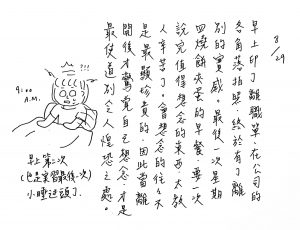 8/29
早上印了離職單,在公司的
各角落拍照,終於有了離
別的實感。最後一次星期
四燒餅夾蛋的早餐。要一次
說完值得想念的東西,太教
人辛苦了,會想念的往往不
是最顯珍貴的,因此當離
開後才驚覺自己想念,才是
最使道別令人惶恐之處。
9:00
A.M.
早上第一次
(也是實習最後一次)
小睡過頭了.